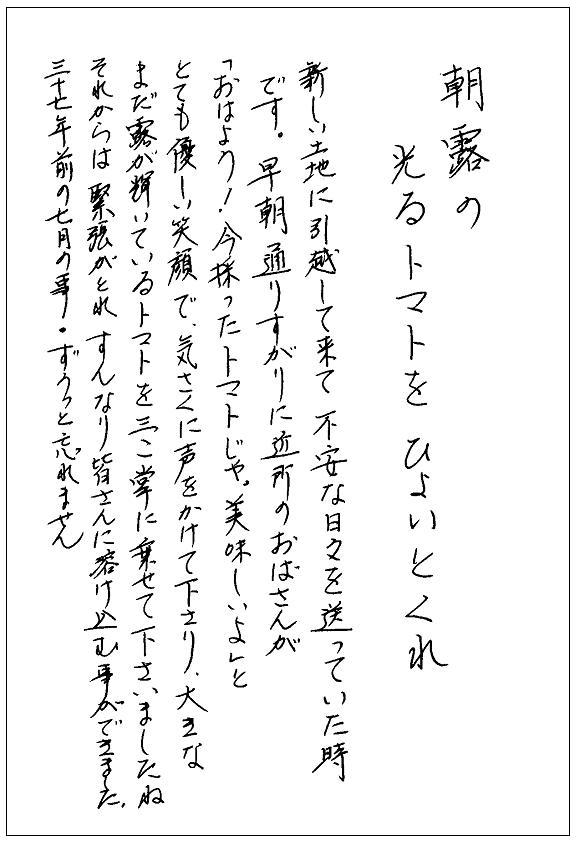 朝露の
光るトマトを ひよいとくれ
新しい土地に引越して来て不安な日々を送っていた時
です。早朝通りすがりに近所のおばさんが
「おはよう!今採ったトマトじゃ。美味しいよ」と
とても優しい笑顔で、気さくに声をかけて下さり、大きな
まだ露が輝いているトマトを三こ掌に乗せて下さいましたね
それからは緊張がとれ すんなり皆さんに溶け込む事ができました。
三十七年前の七月の事!。ずうっと忘れません